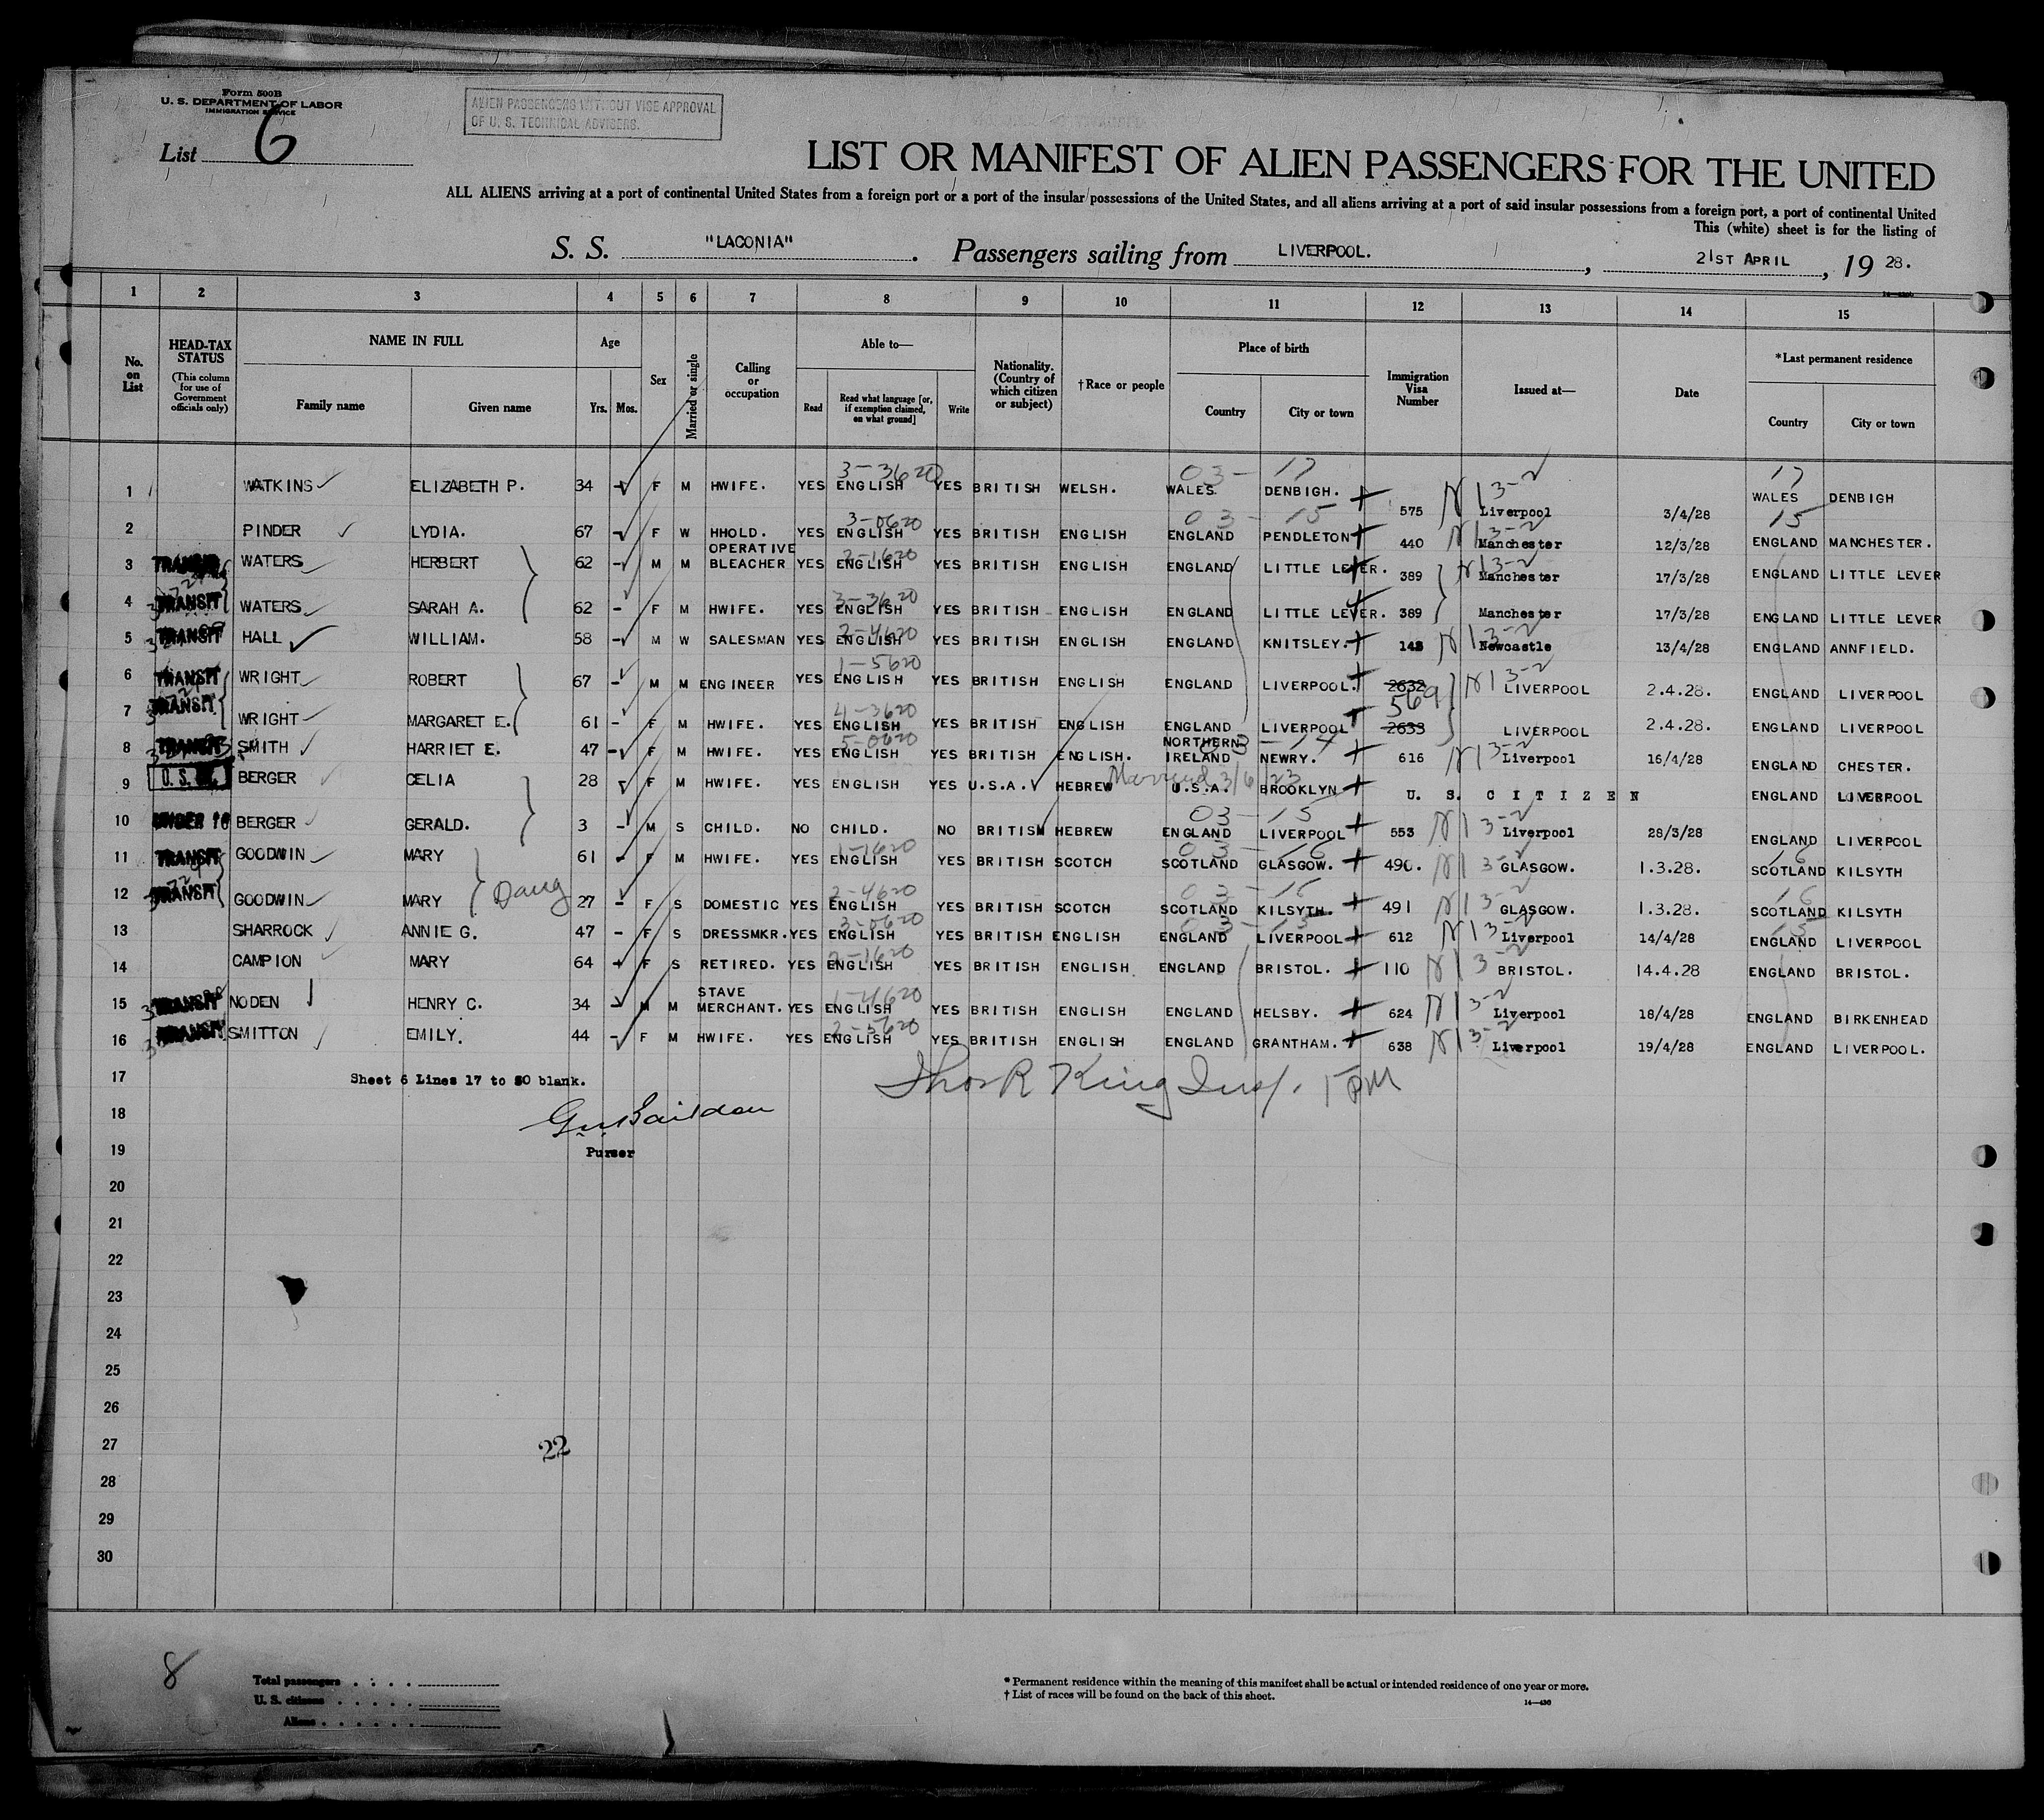 Form 500B
U. S. DEPARTMENT OF LABOR
IMMIGRATION SERVICE
ALIEN PASSENGERS WITHOUT VISE APPROVAL
OF U. S. TECHNICAL ADVISERS.
List 6
LIST OR MANIFEST OF ALIEN PASSENGERS FOR THE UNITED
ALL ALIENS arriving at a port of continental United States from a foreign port or a port of the insular possessions of the United States, and all aliens arriving at a port of said insular possessions from a foreign port, a port of continental United
This (white) sheet is for the listing of
S. S. "LACONIA" . Passengers sailing from LIVERPOOL. , 21ST APRIL , 19 28.
1 2 3 4 5 6 7 8 9 10 11 12 13 14 15
No. on List
HEAD-TAX STATUS (This column for use of Government officials only)
NAME IN FULL Family name Given name
Age Yrs. Mos.
Sex
Married or single
Calling or occupation
Able to— Read Read what language [or, if exemption claimed, on what ground] Write
Nationality. (Country of which citizen or subject)
†Race or people
Place of birth Country City or town
Immigration Visa Number
Issued at—
Date
*Last permanent residence Country City or town
3-3620 03- 17 N 13-2 17
1 WATKINS ELIZABETH P. 34 - F M HWIFE. YES ENGLISH YES BRITISH WELSH. WALES. DENBIGH. 575 Liverpool 3/4/28 WALES DENBIGH
3-0620 03-15 N 13-2 15
2 PINDER LYDIA. 67 - F W HHOLD. YES ENGLISH YES BRITISH ENGLISH ENGLAND PENDLETON 440 Manchester 12/3/28 ENGLAND MANCHESTER.
2-1620 N 13-2
3 TRANSIT WATERS HERBERT 62 - M M OPERATIVE BLEACHER YES ENGLISH YES BRITISH ENGLISH ENGLAND LITTLE LEVER. 389 Manchester 17/3/28 ENGLAND LITTLE LEVER
3-3620
4 TRANSIT WATERS SARAH A. 62 - F M HWIFE. YES ENGLISH YES BRITISH ENGLISH ENGLAND LITTLE LEVER. 389 Manchester 17/3/28 ENGLAND LITTLE LEVER
2-4620 N 13-2
5 TRANSIT HALL WILLIAM. 58 - M W SALESMAN YES ENGLISH YES BRITISH ENGLISH ENGLAND KNITSLEY. 143 Newcastle 13/4/28 ENGLAND ANNFIELD.
1-5620 N 13-2
6 TRANSIT WRIGHT ROBERT 67 - M M ENGINEER YES ENGLISH YES BRITISH ENGLISH ENGLAND LIVERPOOL. 2632 LIVERPOOL 2.4.28. ENGLAND LIVERPOOL
4-3620 569
7 TRANSIT WRIGHT MARGARET E. 61 - F M HWIFE. YES ENGLISH YES BRITISH ENGLISH ENGLAND LIVERPOOL 2633 LIVERPOOL 2.4.28. ENGLAND LIVERPOOL
5-0620 03-14 N 13-2
8 TRANSIT SMITH HARRIET E. 47 - F M HWIFE. YES ENGLISH YES BRITISH ENGLISH. NORTHERN IRELAND NEWRY. 616 Liverpool 16/4/28 ENGLAND CHESTER.
Married 3/6/23
9 U. S. BERGER CELIA 28 F M HWIFE. YES ENGLISH YES U.S.A. HEBREW U.S.A. BROOKLYN U. S. CITIZEN ENGLAND LIVERPOOL
03-15 N 13-2
10 UNDER 16 BERGER GERALD. 3 - M S CHILD. NO CHILD. NO BRITISH HEBREW ENGLAND LIVERPOOL 553 Liverpool 28/3/28 ENGLAND LIVERPOOL
1-1620 03-16 N 13-2 16
11 TRANSIT GOODWIN MARY 61 - F M HWIFE. YES ENGLISH YES BRITISH SCOTCH SCOTLAND GLASGOW. 490. GLASGOW. 1.3.28. SCOTLAND KILSYTH
Daug 2-4620 03-15 N 13-2 16
12 TRANSIT GOODWIN MARY 27 - F S DOMESTIC YES ENGLISH YES BRITISH SCOTCH SCOTLAND KILSYTH. 491 GLASGOW. 1.3.28. SCOTLAND KILSYTH
3-0620 03-15 N 13-2 15
13 SHARROCK ANNIE G. 47 - F S DRESSMKR. YES ENGLISH YES BRITISH ENGLISH ENGLAND LIVERPOOL 612 Liverpool 14/4/28 ENGLAND LIVERPOOL
2-1620 N 13-2
14 CAMPION MARY 64 - F S RETIRED. YES ENGLISH YES BRITISH ENGLISH ENGLAND BRISTOL. 110 BRISTOL. 14.4.28 ENGLAND BRISTOL.
1-4620 N 13-2
15 TRANSIT NODEN HENRY C. 34 - M M STAVE MERCHANT. YES ENGLISH YES BRITISH ENGLISH ENGLAND HELSBY. 624 Liverpool 18/4/28 ENGLAND BIRKENHEAD
2-5620 N 13-2
16 TRANSIT SMITTON EMILY. 44 - F M HWIFE. YES ENGLISH YES BRITISH ENGLISH ENGLAND GRANTHAM. 638 Liverpool 19/4/28 ENGLAND LIVERPOOL.
17 Sheet 6 Lines 17 to 30 blank. Thos R King Insp.
18
19 Purser
20
21
22
23
24
25
26
27 22
28
29
30
8
Total passengers
U. S. citizens
Aliens
* Permanent residence within the meaning of this manifest shall be actual or intended residence of one year or more.
† List of races will be found on the back of this sheet.
14—430